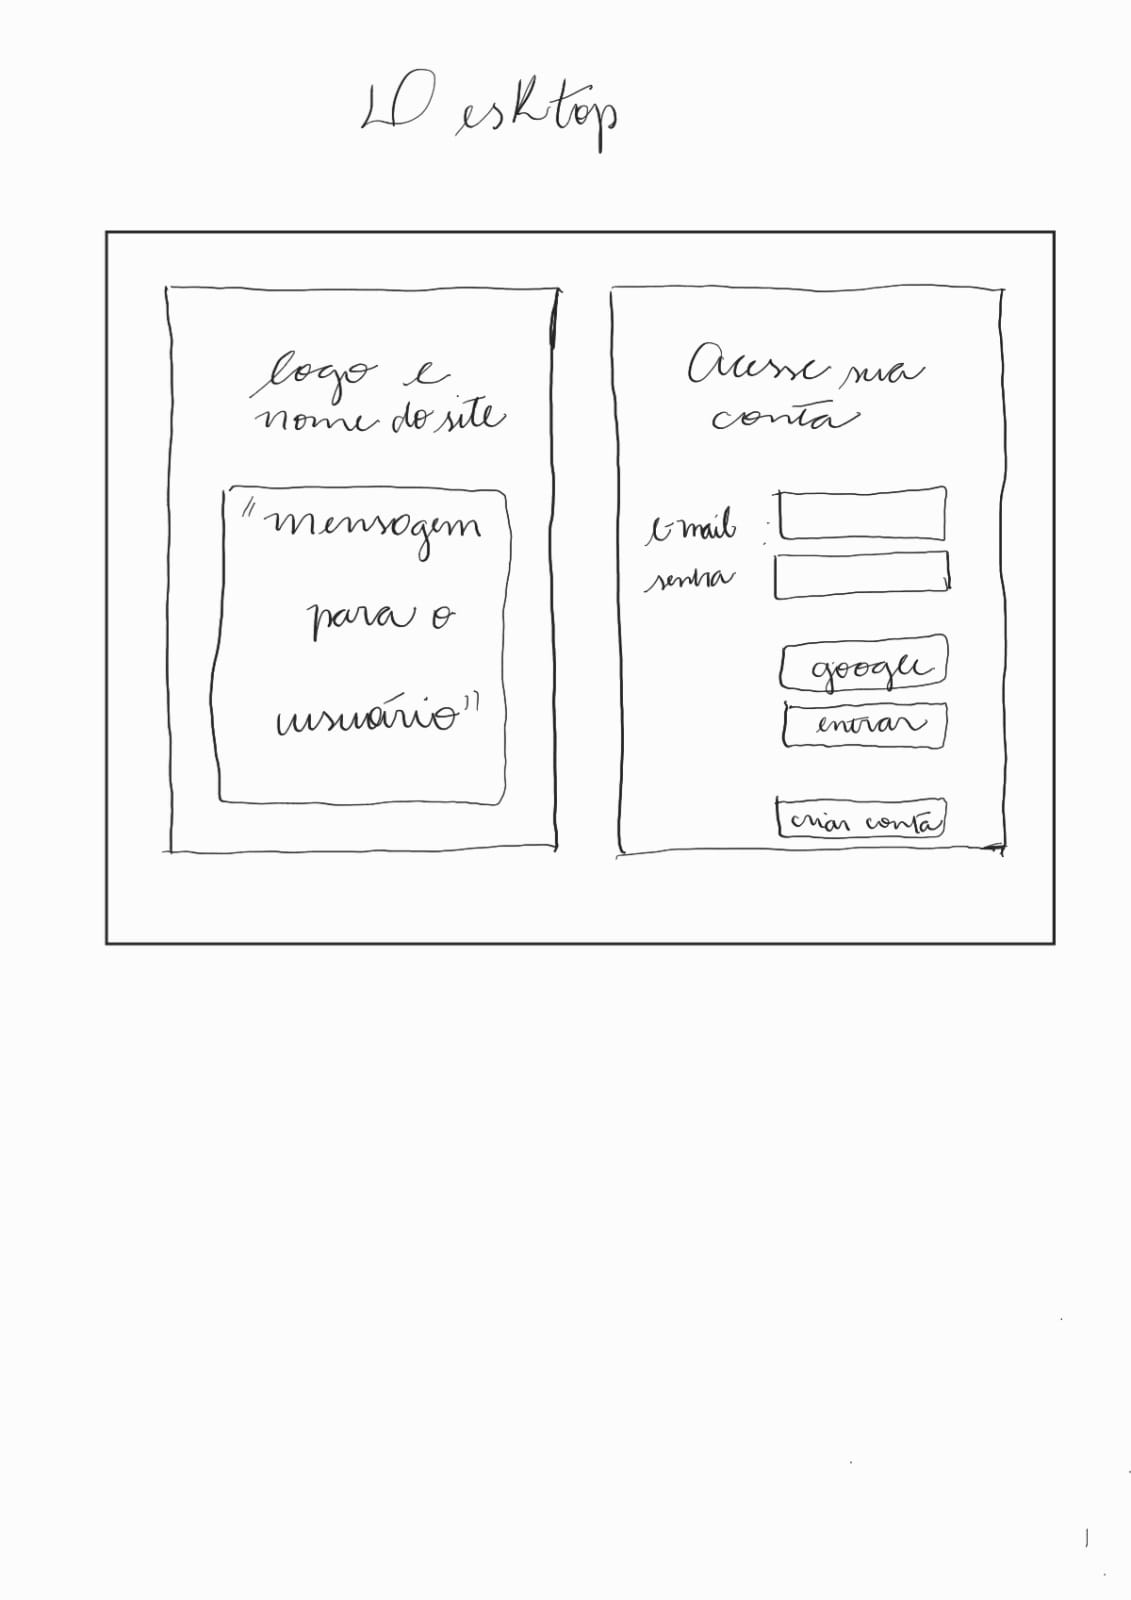 Desktop
logo e
nome do site
"mensagem
para o
usuário"
Acesse sua
conta
e-mail :
senha
google
entrar
criar conta